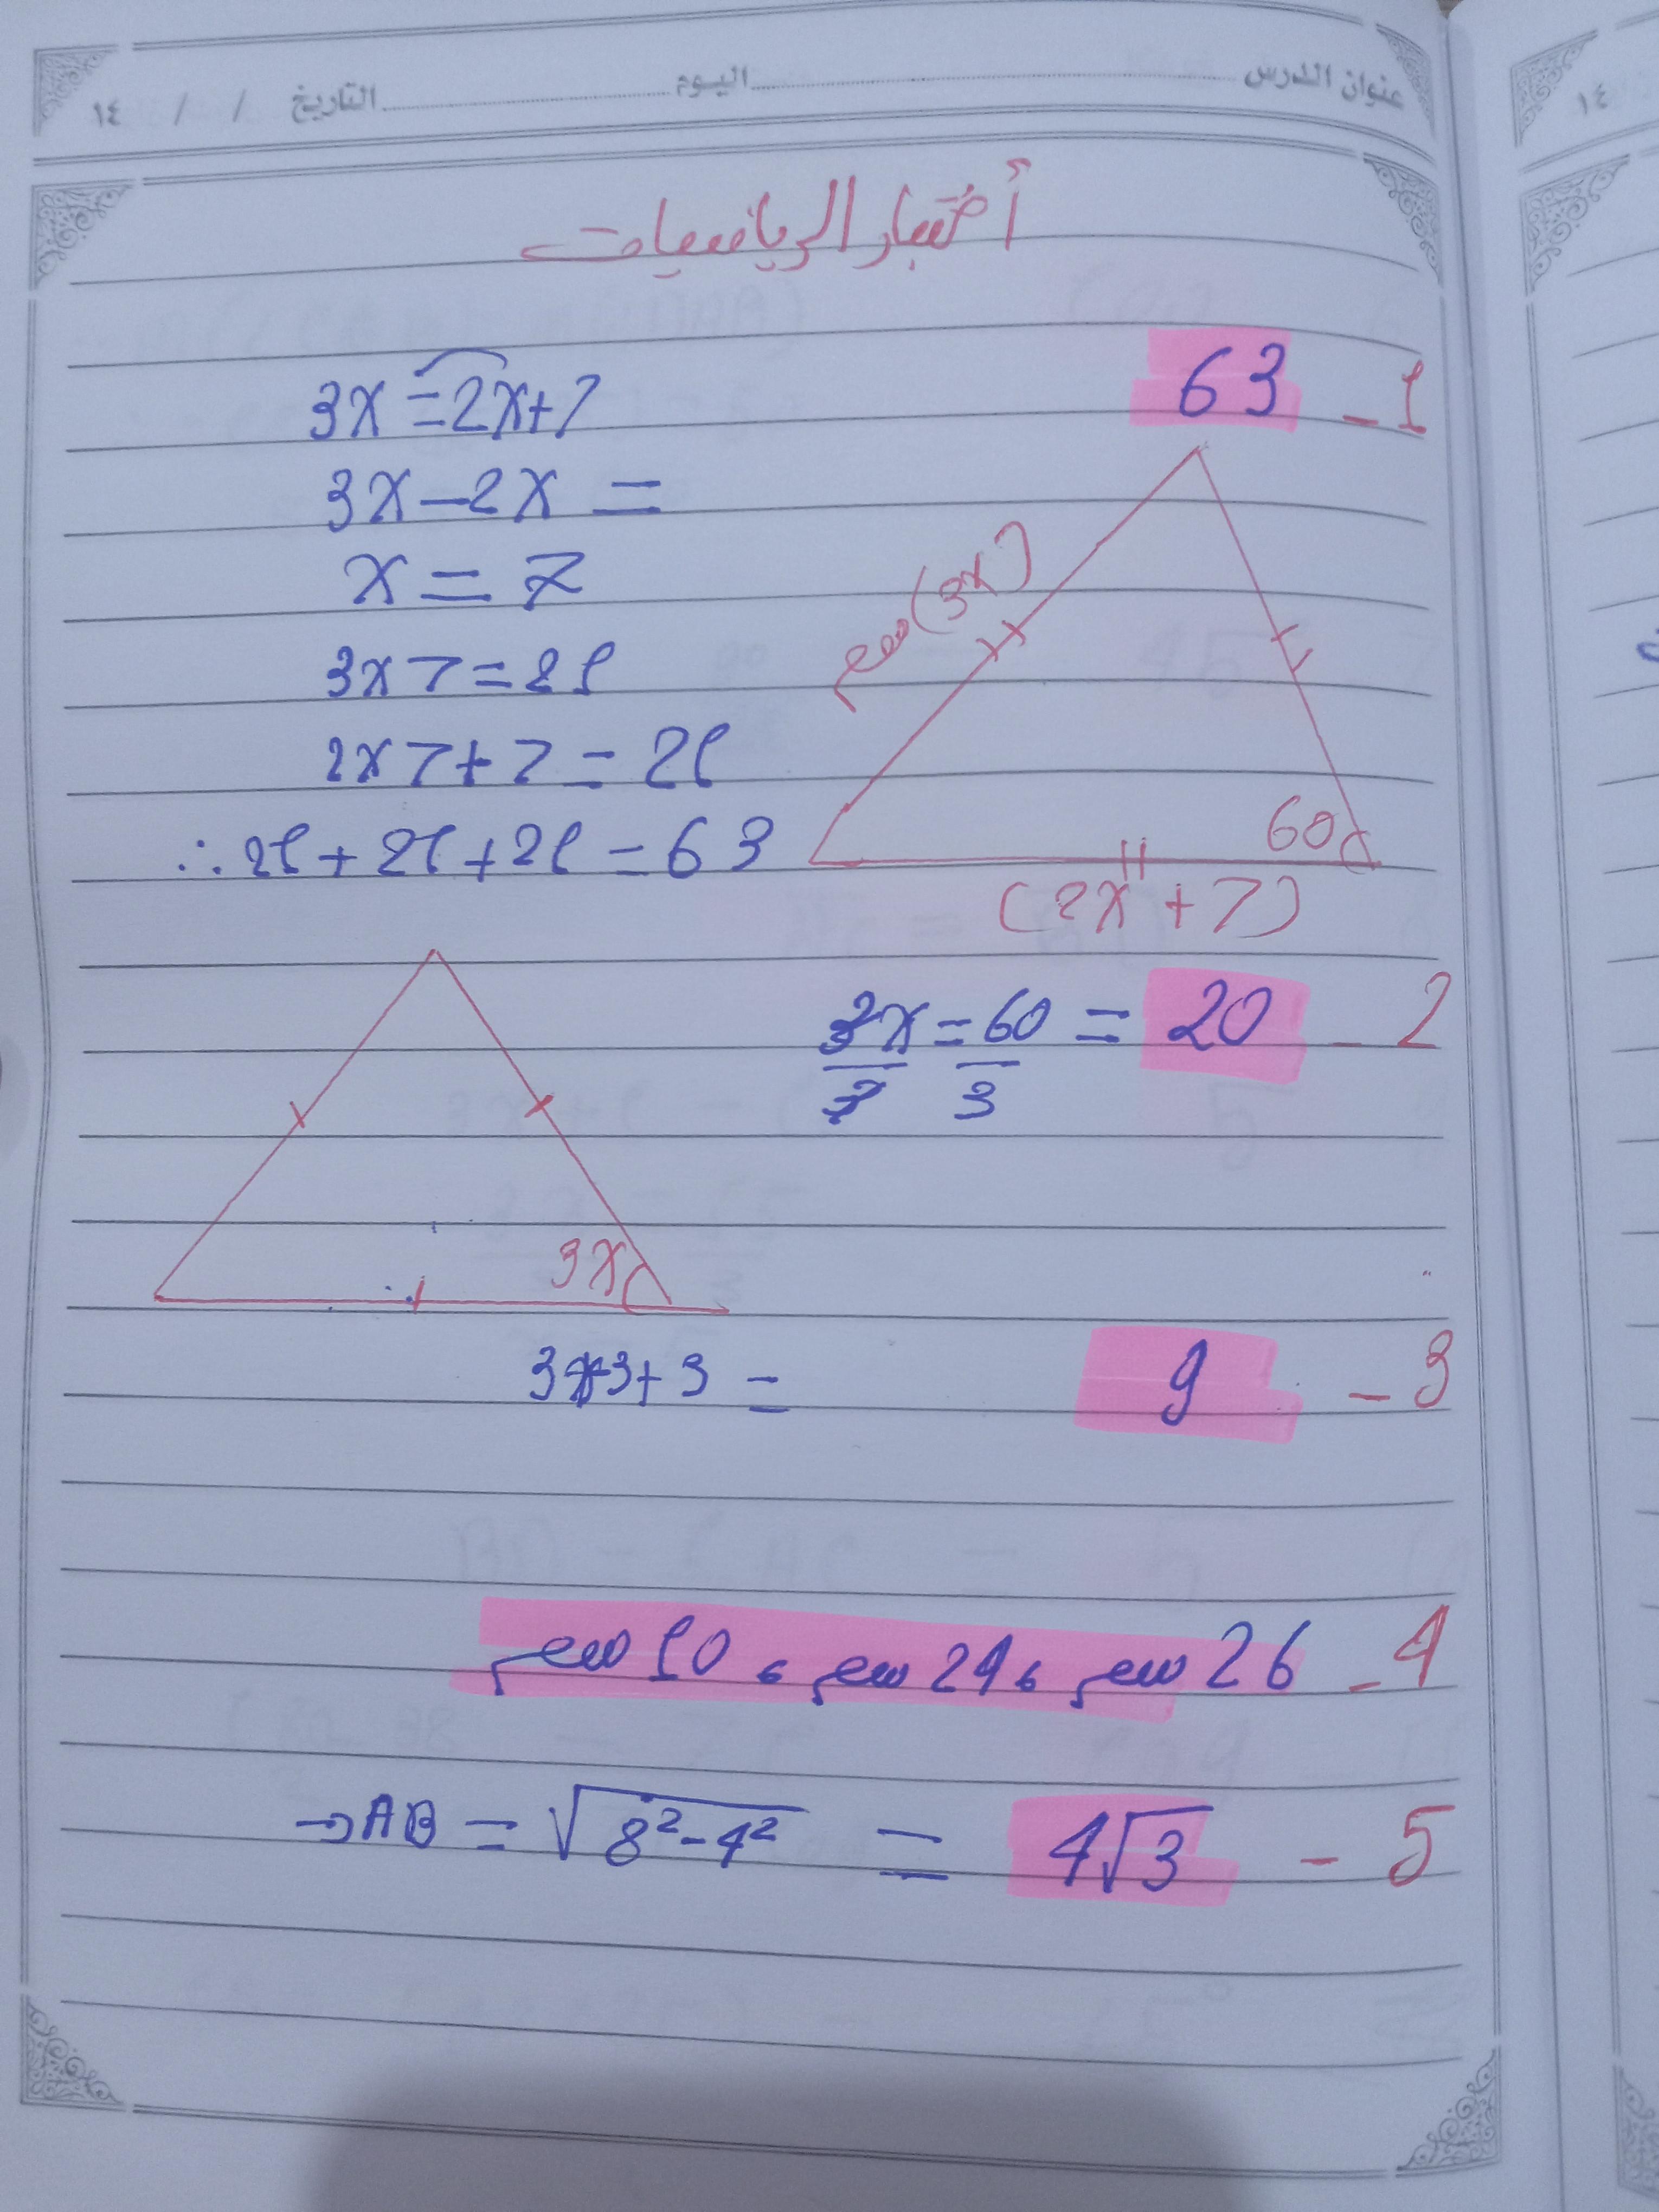 عنوان الدرس ........ اليوم ........ التاريخ / / ١٤
١٤
أختبار الرياضيات
1 - 63
3x = 2x + 7
3x - 2x =
x = 7
3 x 7 = 21
2 x 7 + 7 = 21
∴ 21 + 21 + 21 = 63
(3x) سم
60
(2x + 7)
2 - 20 = 3x/3 = 60/3
3x
3 - 9
3+3+3 =
4 - 26 سم ، 24 سم ، 10 سم
5 - 4√3 = √8² - 4² = AB